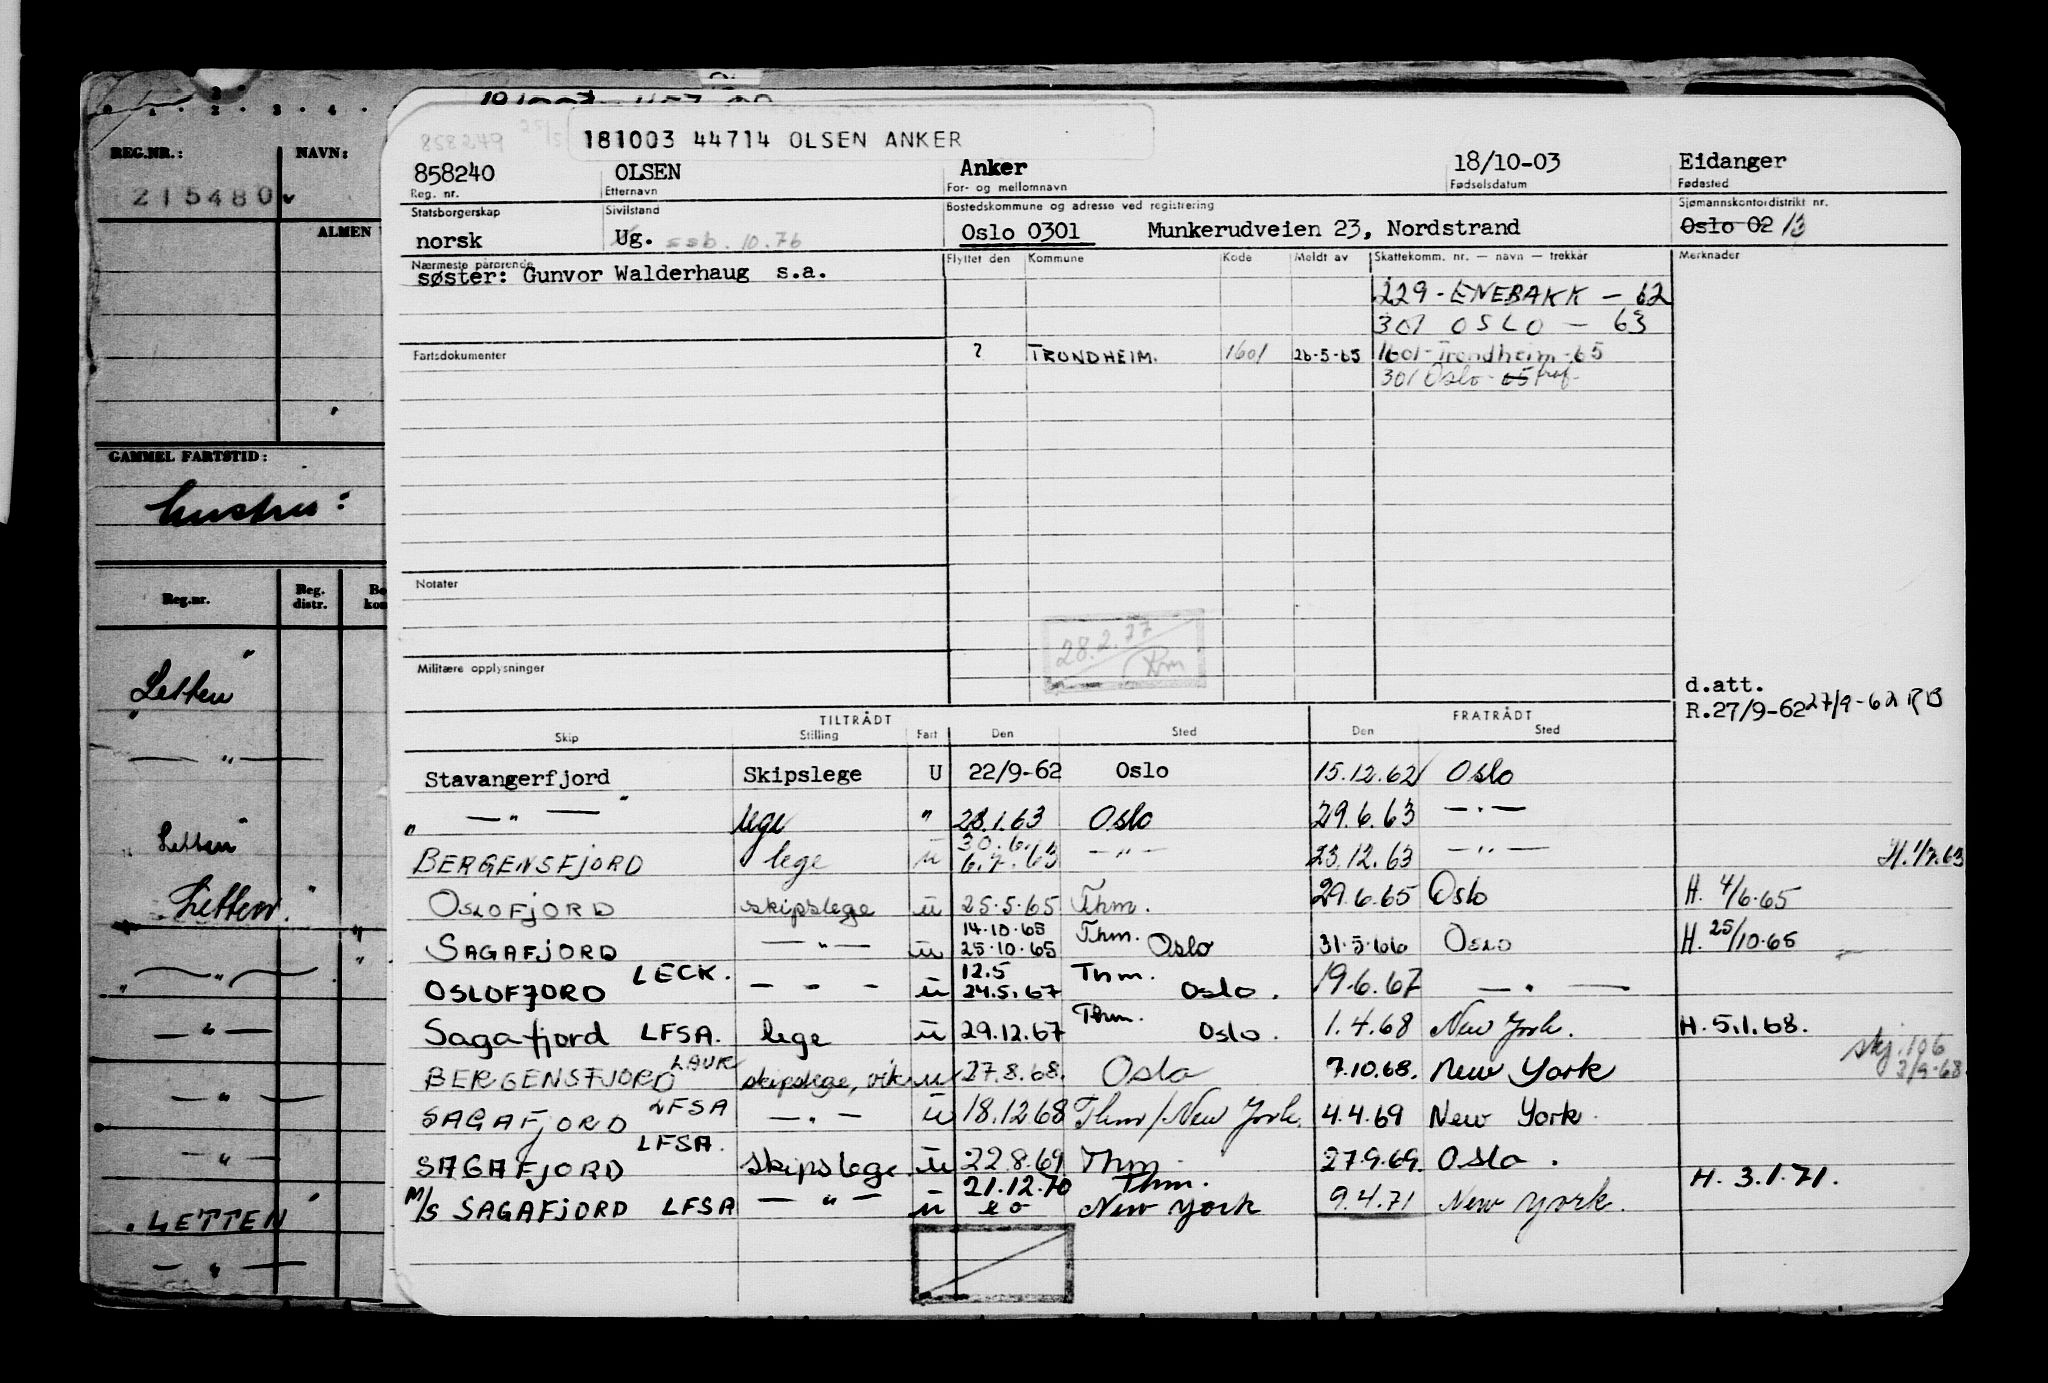 REG.NR.:
NAVN:
215480
ALMEN
GAMMEL FARTSTID:
hustru:
Reg.nr.
Reg. distr.
Letten "
— " —
Letten "
Letten "
— " —
— " —
— " —
— " —
LETTEN
— " —
858249
181003 44714 OLSEN ANKER
858240 OLSEN Anker 18/10-03 Eidanger
Reg. nr. Etternavn For- og mellomnavn Fødselsdatum Fødested
Statsborgerskap Sivilstand Bostedskommune og adresse ved registrering Sjømannskontordistrikt nr.
norsk Ug. ssb. 10.76 Oslo 0301 Munkerudveien 23, Nordstrand Oslo 02 13
Nærmeste pårørende Flyttet den Kommune Kode Meldt av Skattekomm. nr. — navn — trekkår Merknader
søster: Gunvor Walderhaug s.a.
229 - ENEBAKK — 62
301 OSLO — 63
Fartsdokumenter ? TRONDHEIM. 1601 26-5-65 1601 - Trondheim - 65
301 Oslo - 65
Notater
28.2.77
Militære opplysninger
d.att.
R.27/9-62 27/9-62 RB
TILTRÅDT FRATRÅDT
Skip Stilling Fart Den Sted Den Sted
Stavangerfjord Skipslege U 22/9-62 Oslo 15.12.62 Oslo
" — " — " lege " 28.1.63 Oslo 29.6.63 — " —
30.6.
BERGENSFJORD lege u 6.7.63 — " — 23.12.63 — " — H. 1/7.63
OSLOFJORD skipslege u 25.5.65 Thm. 29.6.65 Oslo H. 4/6-65
14-10-65 Thm.
SAGAFJORD — " — u 25-10-65 Oslo 31-5-66 Oslo H. 25/10-65
LECK. 12.5 Thm.
OSLOFJORD — " — u 24.5.67 Oslo. 19-6.67 — " —
Thm.
Sagafjord LFSA. lege u 29.12.67 Oslo. 1.4.68 New York. H. 5.1.68.
skj. 106
LAUK 2/9-68
BERGENSFJORD skipslege, vik u 27.8.68. Oslo 7.10.68. New York
SAGAFJORD LFSA — " — u 18.12 68 Thm/New York. 4.4.69 New York.
LFSA.
SAGAFJORD skipslege. u 22.8.69. Thm. 27.9.69. Oslo.
21.12.70 Thm. H. 3.1.71.
M/S SAGAFJORD LFSA — " — u New York 9.4.71 New York.